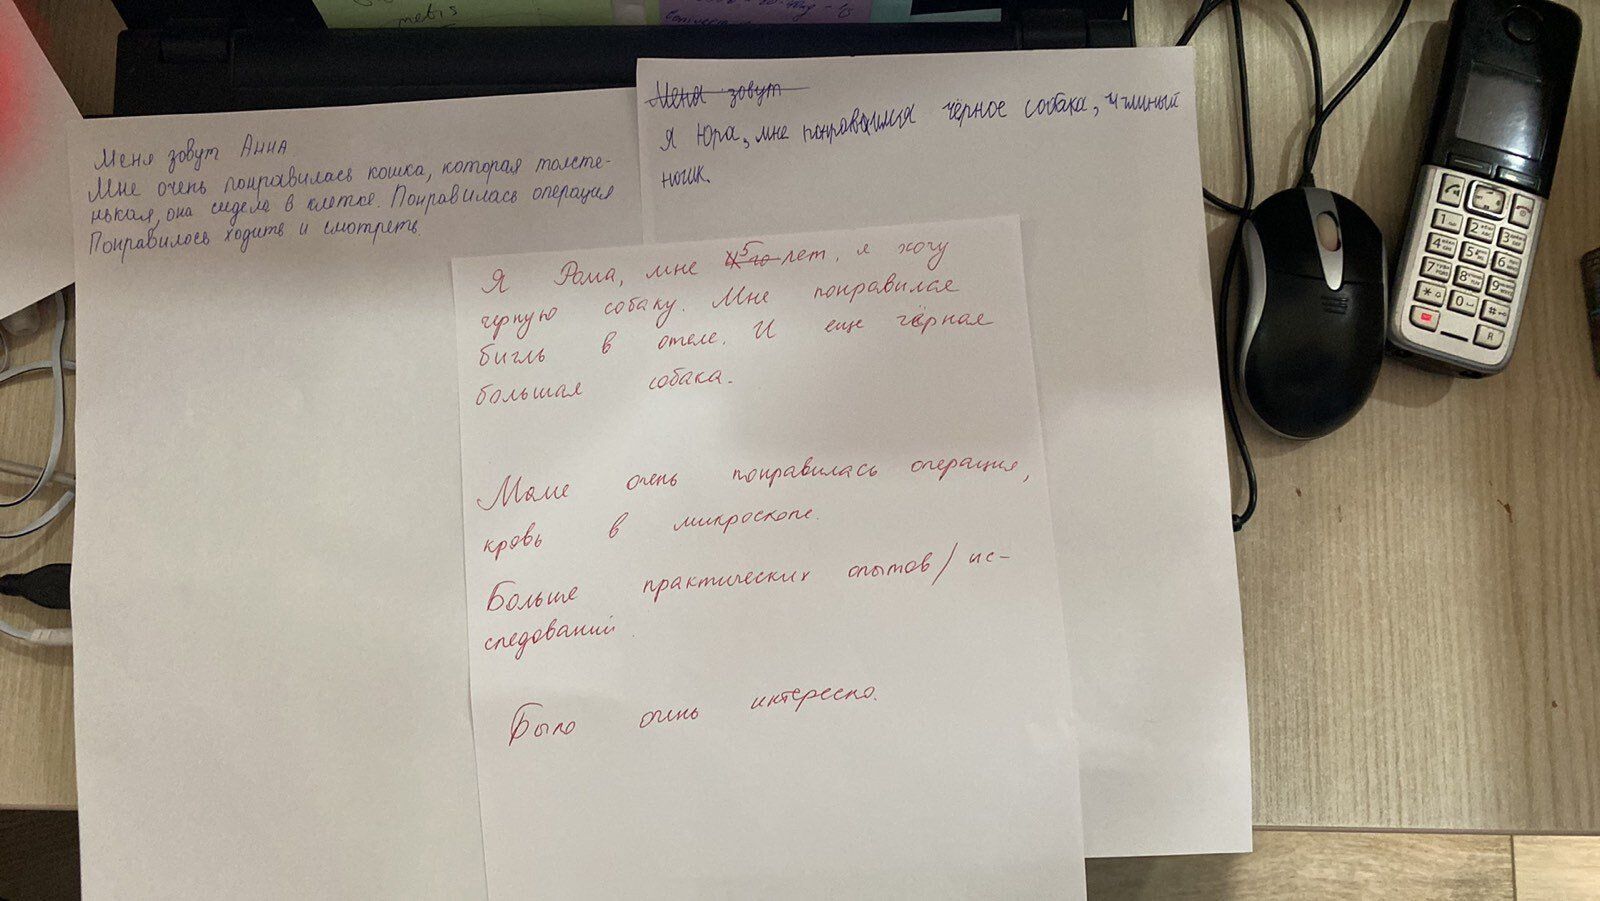 metis
Меня зовут Анна
Мне очень понравилась кошка, которая толсте-
нькая, она сидела в клетке. Понравилась операция
Понравилось ходить и смотреть.
Меня зовут
Я Юра, мне понравилися чёрное собака,
ношк.
Я Рома, мне 5 лет, я хочу
черную собаку. Мне понравилае
бигль в отеле. И еще чёрная
большая собака.
Маме очень понравилась операция,
кровь в микроскопе.
Больше практических опытов/ис-
следований.
Было очень интересно.
1
2 ABC
3 DEF
4 GHI
5 JKL
6 MNO
7 PQRS
8 TUV
9 WXYZ
*
0
#
R